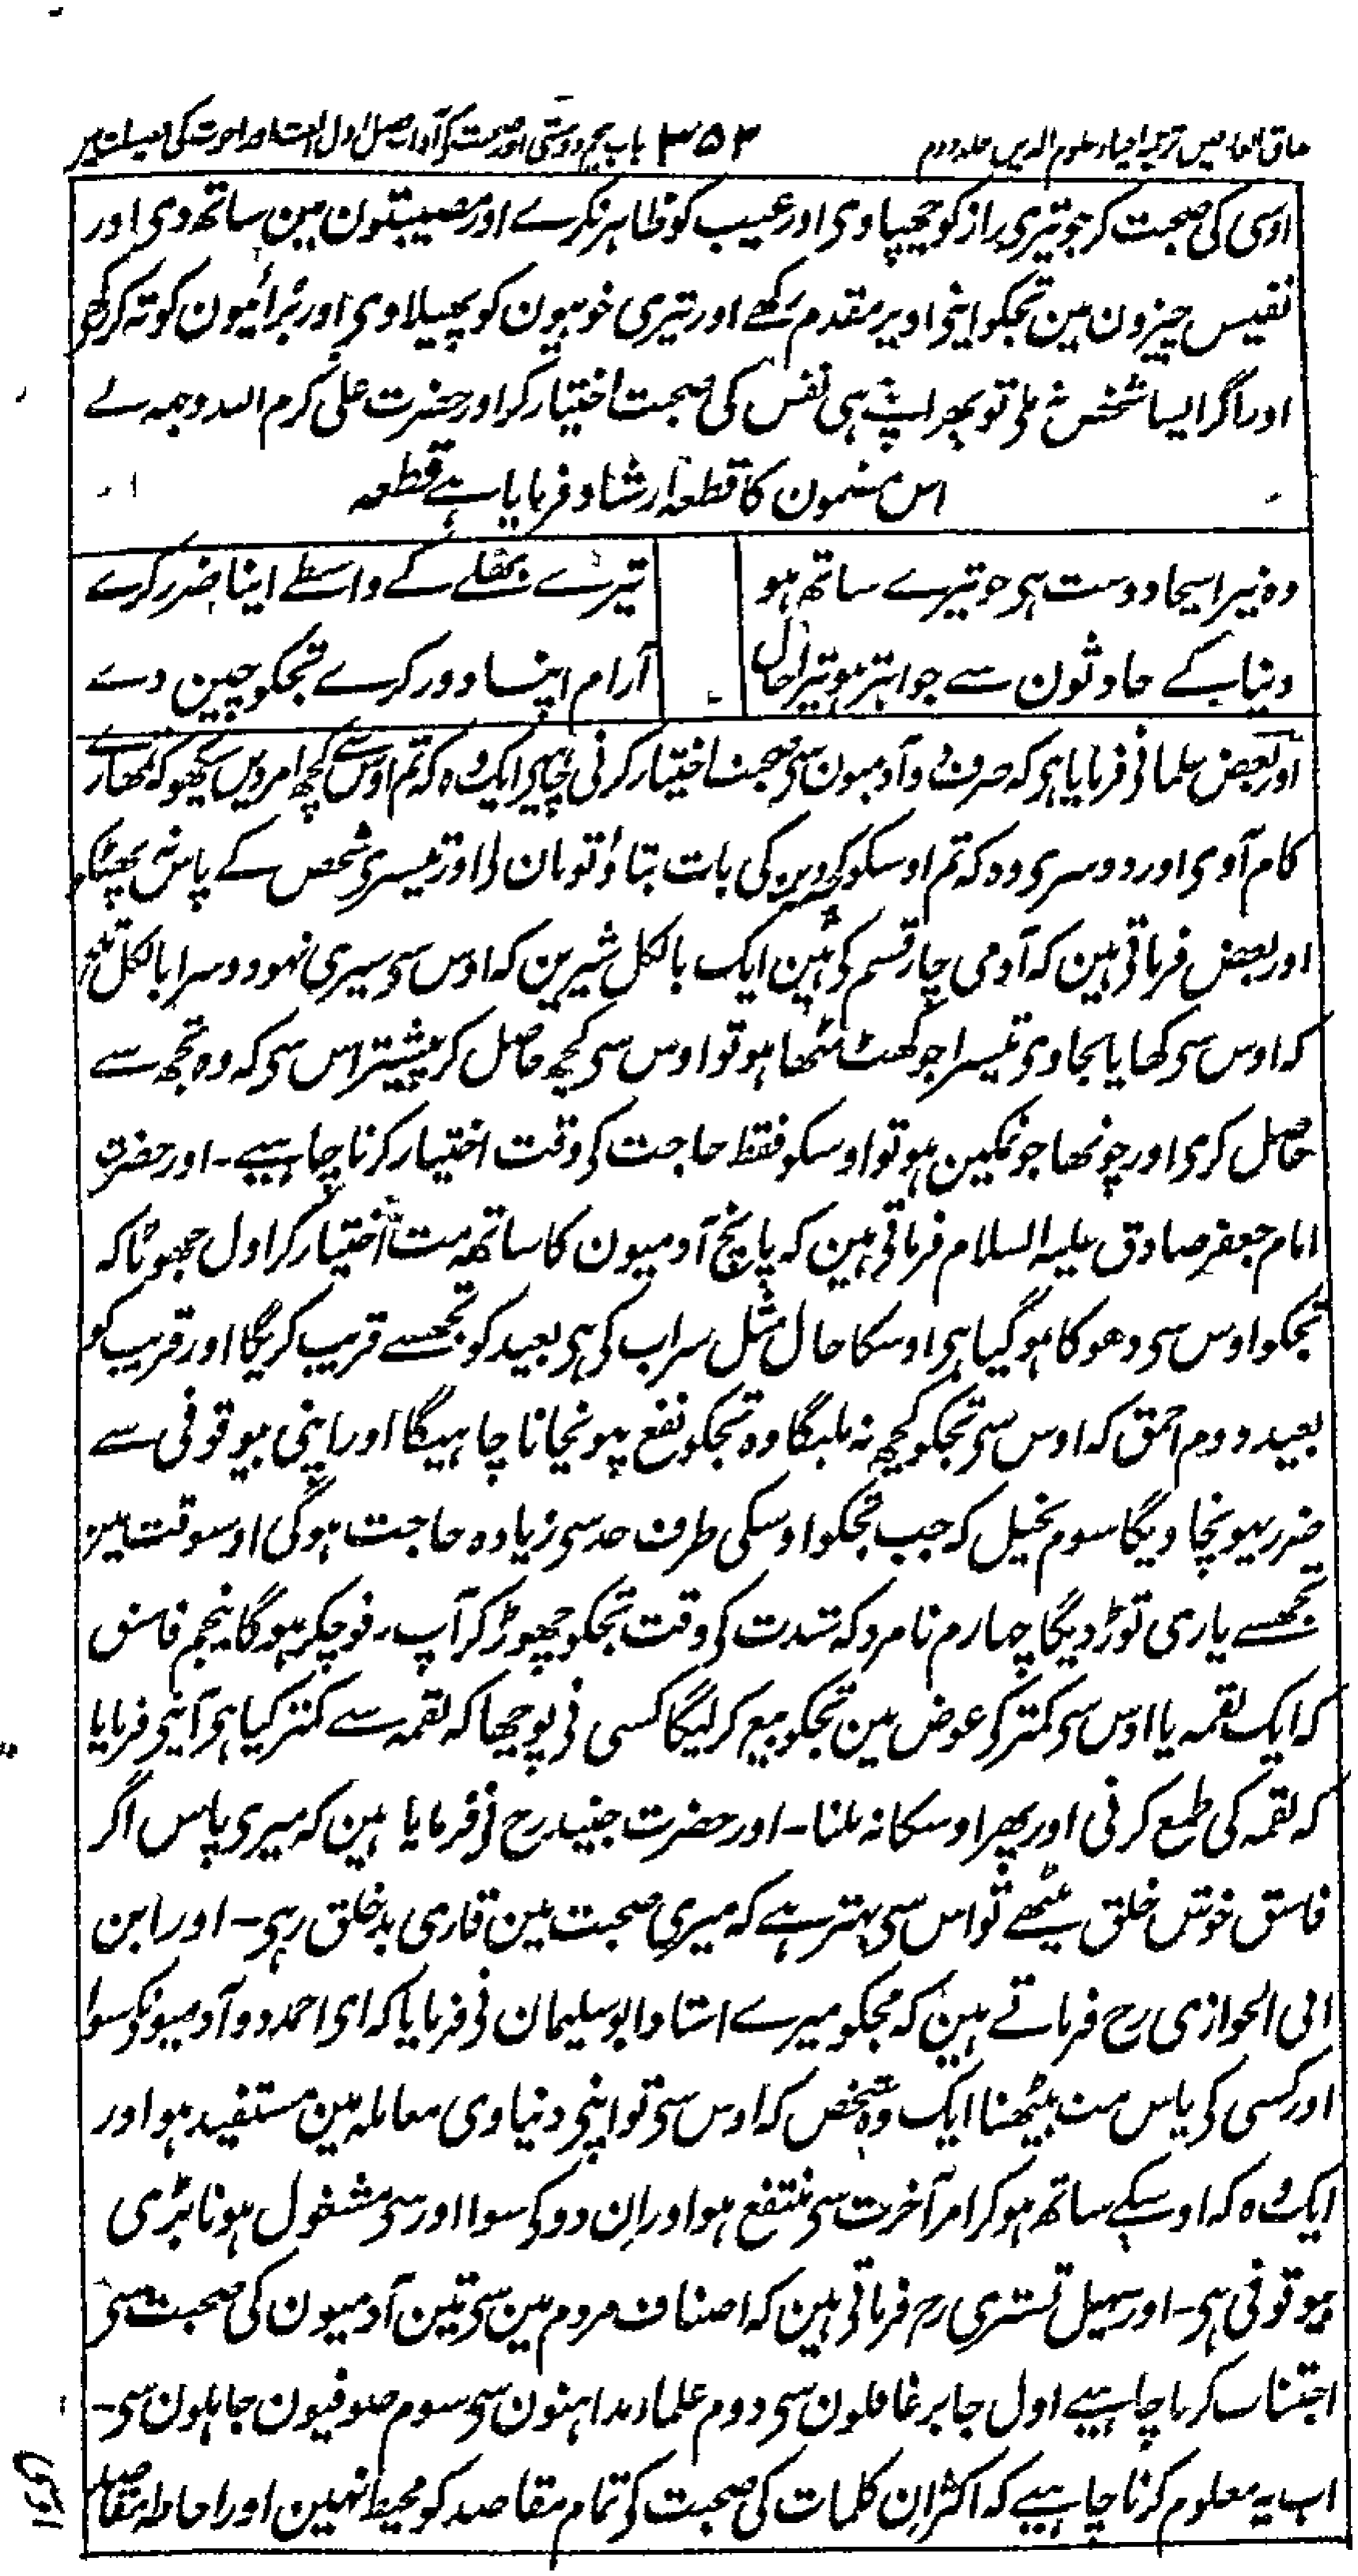 مذاق العارفین ترجمہ احیاء علوم الدین جلد دوم ۳۵۲ باب پنجم دوستی اور صحبت کی آداب فصل اول الفت اور اخوت کی فضیلت میں
اوسی کی صحبت کر جو تیری راز کو چھپاوی اور عیب کو ظاہر نکرے اور مصیبتون مین ساتھ دی اور
نفیس چیزون مین تجکو اپنی اوپر مقدم رکھے اور تیری خوبیون کو پھیلاوی اور برائیون کو تہ کر رکھی
اور اگر ایسا شخص نہ ملی تو پھر اپنے ہی نفس کی صحبت اختیار کر اور حضرت علی کرم اللہ وجہہ نے
اس مضمون کا قطعہ ارشاد فرمایا ہے قطعہ
وہ تیرا سچا دوست ہی جو تیرے ساتھ ہو تیرے بھلے کے واسطے اپنا ضرر کرے
دنیا کے حادثون سے جو ابتر ہو تیرا حال آرام اپنا دور کرے تجکو چین دے
اور بعض علما نی فرمایا ہی کہ صرف دو آدمیون سی صحبت اختیار کرنی چاہیی ایک وہ کہ تم اوس سے کچھ امر دین سیکھو کہ تمھارے
کام آوی اور دوسری وہ کہ تم اوسکو کچھ دین کی بات بتاؤ تو مان لی اور تیسری شخص کے پاس نہ پھٹکو
اور بعض فرماتی ہین کہ آدمی چار قسم کی ہین ایک بالکل شیرین کہ اوس سی سیری نہو دوسرا بالکل تلخ
کہ اوس سی کھایا نجاوی تیسرا جو کھٹ مٹھا ہو تو اوس سی کچھ حاصل کر پیشتر اس سی کہ وہ تجھ سے
حاصل کری اور چوتھا جو نمکین ہو تو اوسکو فقط حاجت کی وقت اختیار کرنا چاہیے۔ اور حضرت
امام جعفر صادق علیہ السلام فرماتی ہین کہ پانچ آدمیون کا ساتھ مت اختیار کر اول جھوٹا کہ
تجکو اوس سی دھوکا ہو گیا ہی اوسکا حال مثل سراب کی ہی بعید کو تجھسے قریب کریگا اور قریب کو
بعید دوم احمق کہ اوس سی تجکو کچھ نہ ملیگا وہ تجکو نفع پہونچانا چاہیگا اور اپنی بیوقوفی سے
ضرر پہونچادیگا سوم بخیل کہ جب تجکو اوسکی طرف حد سی زیادہ حاجت ہوگی اوسوقت مین
تجھسے یاری توڑ دیگا چہارم نامرد کہ شدت کی وقت تجکو چھوڑ کر آپ رفوچکر ہوگا پنجم فاسق
کہ ایک لقمہ یا اوس سی کمتر کی عوض مین تجکو بیع کر لیگا کسی نی پوچھا کہ لقمہ سے کمتر کیا ہی آپنی فرمایا
کہ لقمہ کی طمع کرنی اور پھر اوسکا نہ ملنا۔ اور حضرت جنید رح نی فرمایا ہین کہ میری پاس اگر
فاسق خوش خلق بیٹھے تو اس سی بہتر ہے کہ میری صحبت مین قاری بدخلق رہی۔ اور ابن
ابی الحوازی رح فرماتے ہین کہ مجکو میرے استاد ابو سلیمان نی فرمایا کہ ای احمد دو آدمیونکی سوا
اور کسی کی پاس مت بیٹھنا ایک وہ شخص کہ اوس سی تو اپنی دنیاوی معاملہ مین مستفید ہو اور
ایک وہ کہ اوسکے ساتھ ہو کر امر آخرت سی منتفع ہو اور ان دو کی سوا اور سی مشغول ہونا بڑی
بیوقوفی ہی۔ اور سہیل تستری رح فرماتی ہین کہ اصناف مردم مین سی تین آدمیون کی صحبت سی
اجتناب کرنا چاہیے اول جابر غافلون سی دوم علماء مداہنون سی سوم صوفیون جاہلون سی۔
اب یہ معلوم کرنا چاہیے کہ اکثر ان کلمات کی صحبت کی تمام مقاصد کو محیط نہین اور احاطہ مقاصد